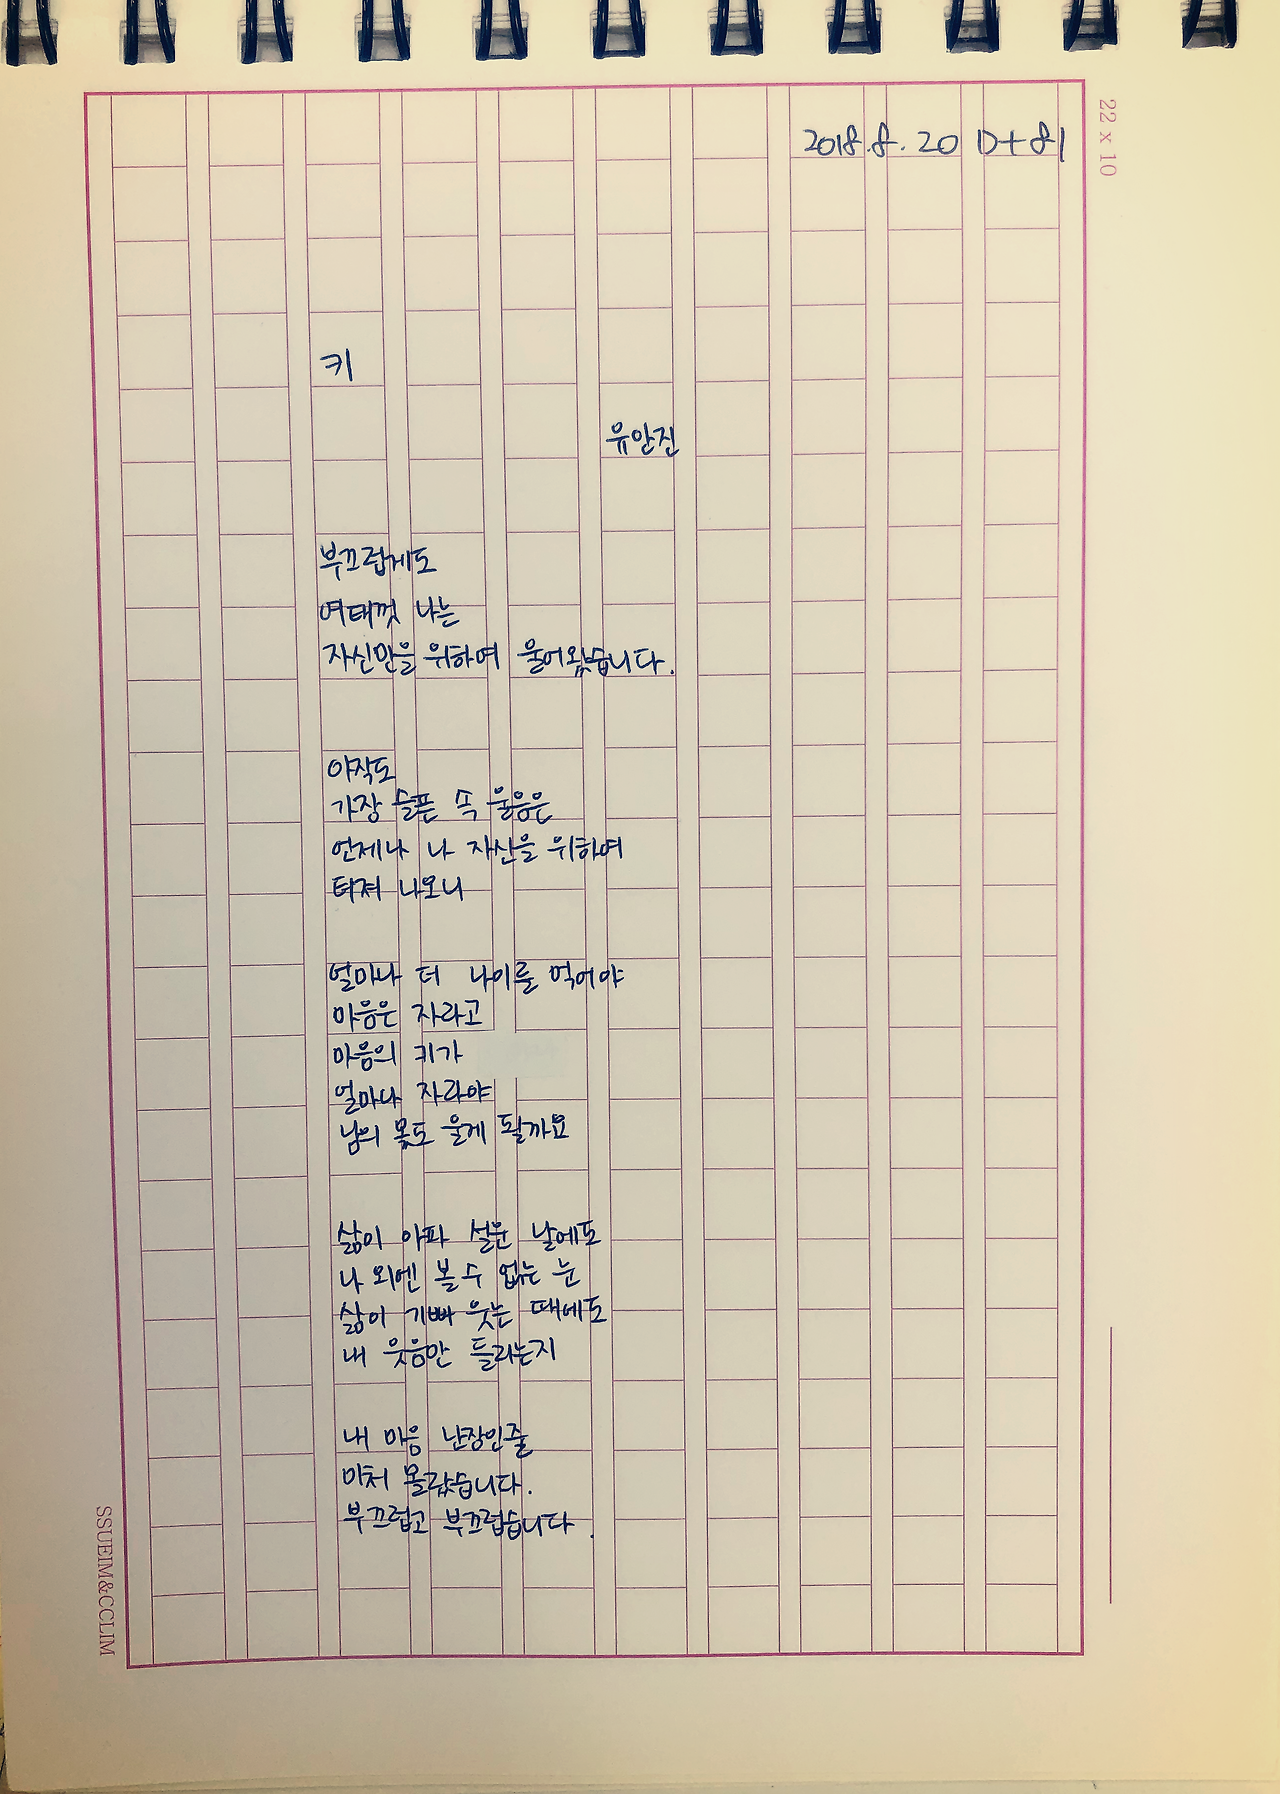 22 x 10
2018.8.20 D+81
키
유안진
부끄럽게도
여태껏 나는
자신만을 위하여 울어왔습니다.
아직도
가장 슬픈 속 울음은
언제나 나 자신을 위하여
터져 나오니
얼마나 더 나이를 먹어야
마음은 자라고
마음의 키가
얼마나 자라야
남의 몫도 울게 될까요
삶이 아파 설운 날에도
나 외엔 볼 수 없는 눈
삶이 기뻐 웃는 때에도
내 웃음만 들리는지
내 마음 난장인줄
미처 몰랐습니다.
부끄럽고 부끄럽습니다.
SSUEIM&CCLIM